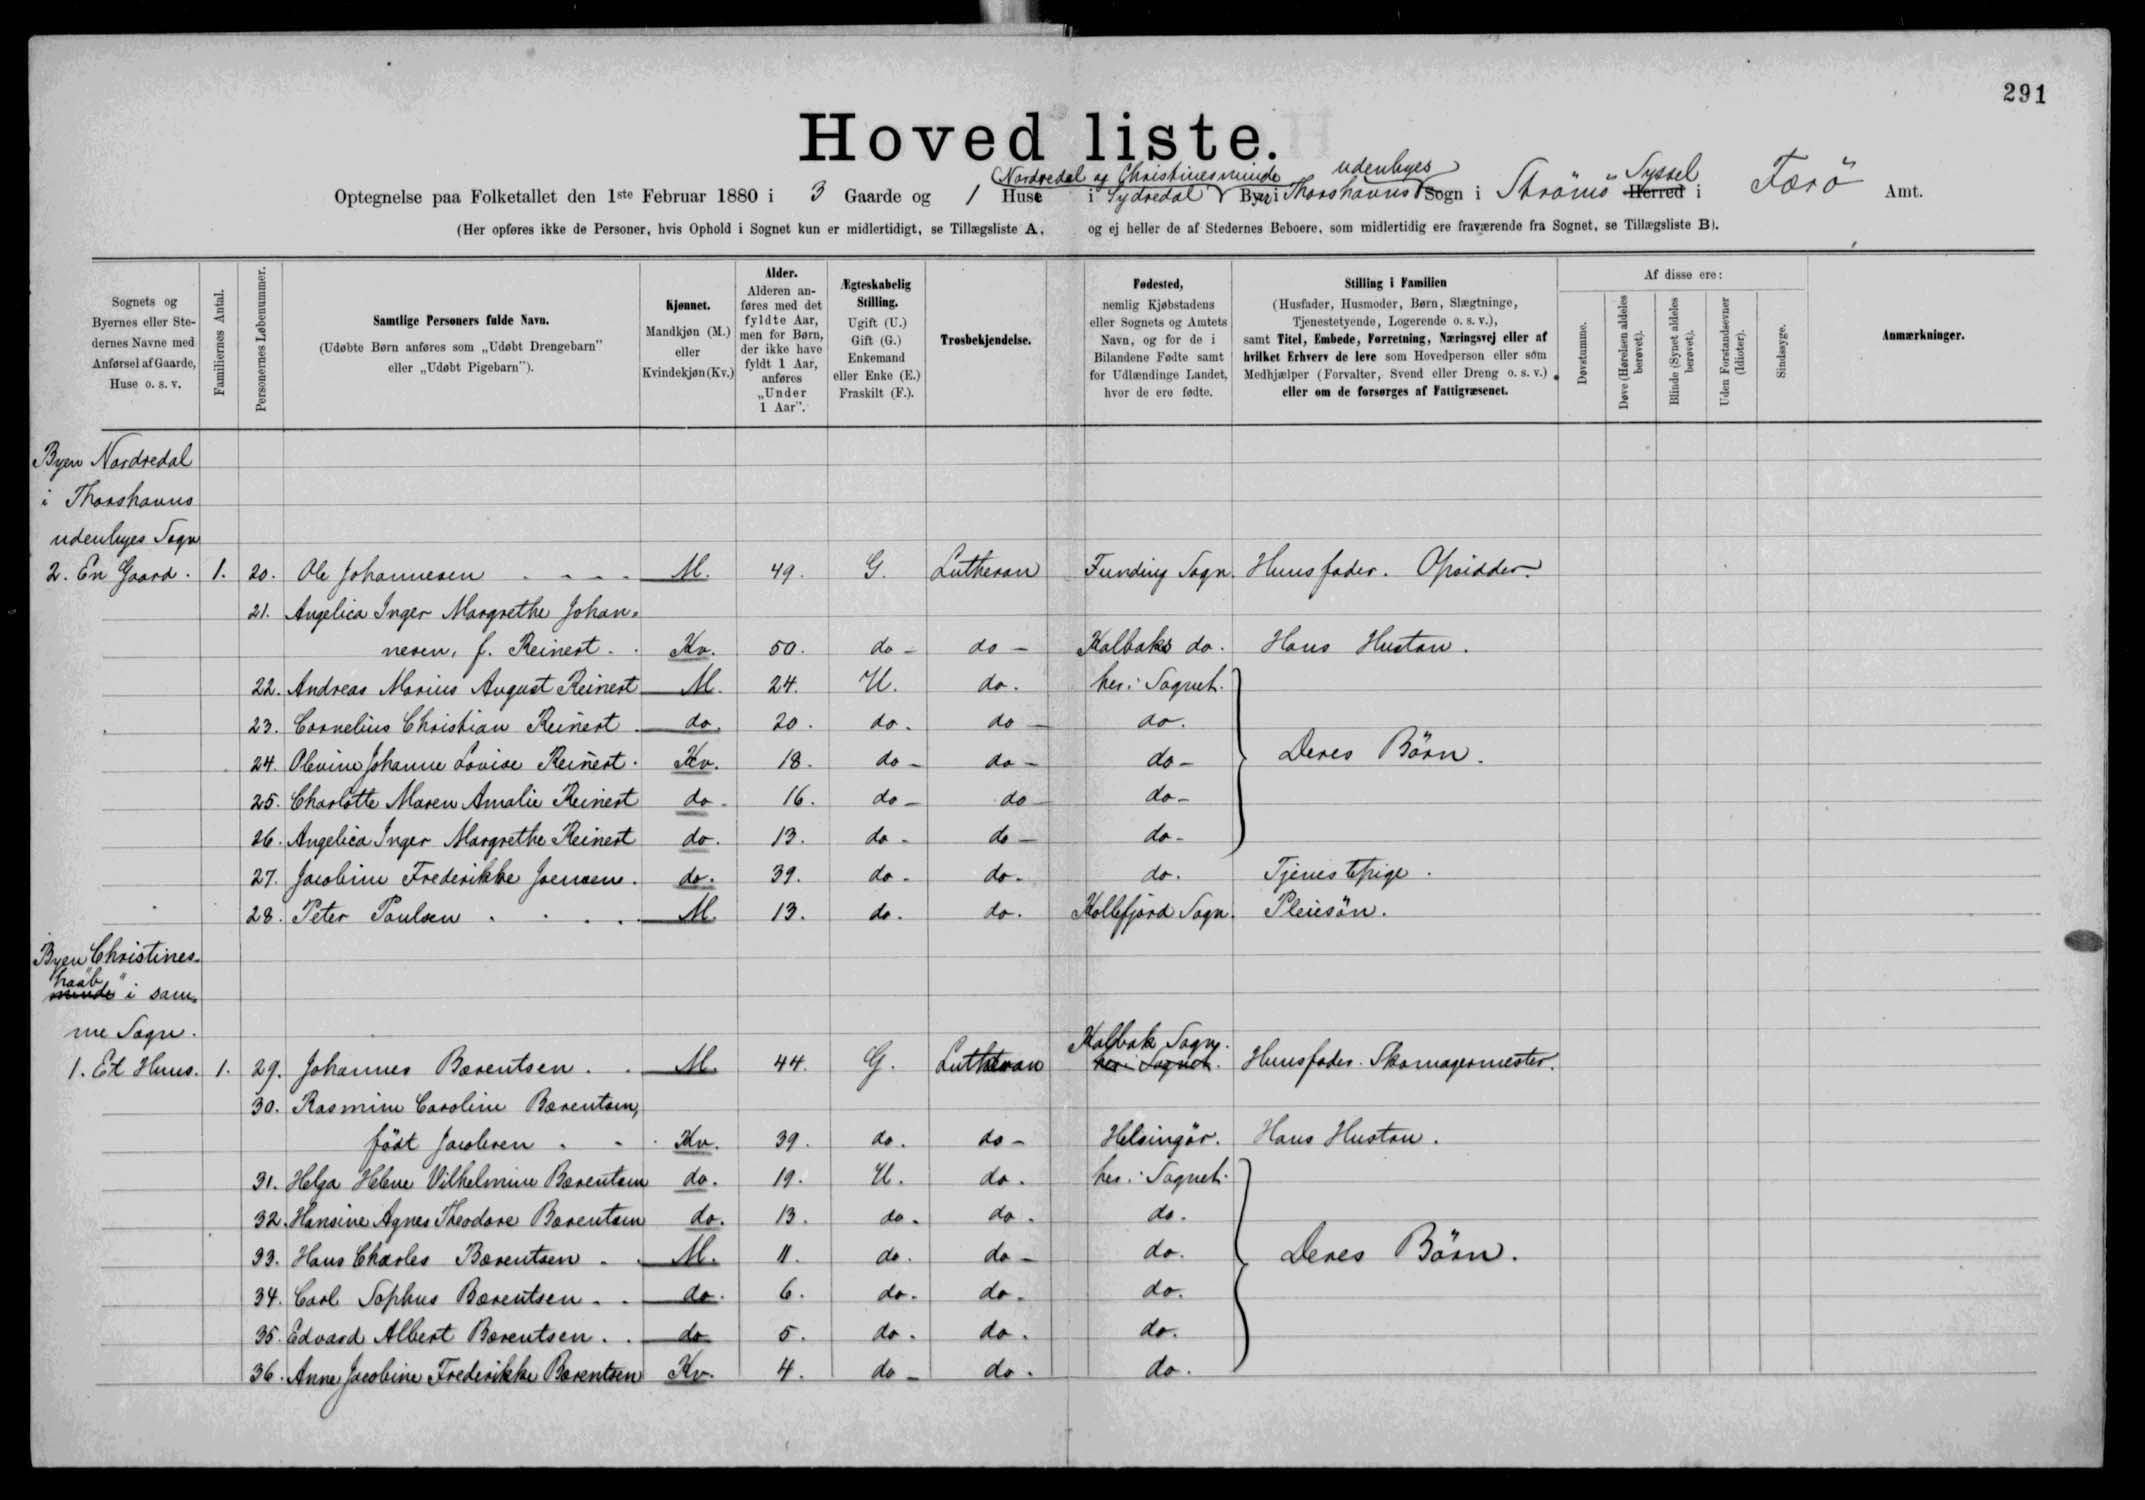 291
Hovedliste.
Nordredal og Christinesminde udenbyes Syssel
Optegnelse paa Folketallet den 1ste Februar 1880 i 3 Gaarde og 1 Huse i Sydredal Byer i Thorshavns Sogn i Strömö Herred i Færö Amt.
(Her opføres ikke de Personer, hvis Ophold i Sognet kun er midlertidigt, se Tillægsliste A, og ej heller de af Stedernes Beboere, som midlertidig ere fraværende fra Sognet, se Tillægsliste B).
Sognets og
Byernes eller Ste-
dernes Navne med
Anførsel af Gaarde,
Huse o. s. v.
Familiernes Antal.
Personernes Løbenummer.
Samtlige Personers fulde Navn.
(Udøbte Børn anføres som „Udøbt Drengebarn"
eller „Udøbt Pigebarn").
Kjønnet.
Mandkjøn (M.)
eller
Kvindekjøn (Kv.)
Alder.
Alderen an-
føres med det
fyldte Aar,
men for Børn,
der ikke have
fyldt 1 Aar,
anføres
„Under
1 Aar".
Ægteskabelig
Stilling.
Ugift (U.)
Gift (G.)
Enkemand
eller Enke (E.)
Fraskilt (F.).
Trosbekjendelse.
Fødested,
nemlig Kjøbstadens
eller Sognets og Amtets
Navn, og for de i
Bilandene Fødte samt
for Udlændinge Landet,
hvor de ere fødte.
Stilling i Familien
(Husfader, Husmoder, Børn, Slægtninge,
Tjenestetyende, Logerende o. s. v.),
samt Titel, Embede, Forretning, Næringsvej eller af
hvilket Erhverv de leve som Hovedperson eller som
Medhjælper (Forvalter, Svend eller Dreng o. s. v.)
eller om de forsørges af Fattigvæsenet.
Af disse ere:
Døvstumme.
Døve (Hørelsen aldeles berøvet).
Blinde (Synet aldeles berøvet).
Uden Forstandsevner (Idioter).
Sindssyge.
Anmærkninger.
Byen Nordredal
i Thorshavns
udenbyes Sogn
2. En Gaard. 1. 20. Ole Johannesen M. 49. G. Lutheran Funding Sogn. Huusfader. Opsidder.
21. Angelica Inger Margrethe Johan-
nesen, f. Reinert. Kv. 50. do - do - Kalbaks do. Hans Hustru.
22. Andreas Marius August Reinert M. 24. U. do. her i Sognet.
23. Cornelius Christian Reinert do. 20. do. do - do.
24. Olevine Johanne Lovise Reinert. Kv. 18. do - do - do - Deres Börn.
25. Charlotte Maren Amalie Reinert do - 16. do - do - do -
26. Angelica Inger Margrethe Reinert do. 13. do - do - do -
27. Jacobine Frederikke Joensen. do. 39. do - do. do. Tjenestepige.
28. Peter Poulsen M. 13. do. do. Kollefjord Sogn. Pleiesön.
Byen Christines-
haab"
minde" i sam-
me Sogn.
Kalbak Sogn.
1. Et Huus. 1. 29. Johannes Bærentsen M. 44. G. Lutheran her i Sognet. Huusfader. Skomagermester.
30. Rasmine Caroline Bærentsen,
födt Jacobsen Kv. 39. do. do - Helsingör. Hans Hustru.
31. Helga Helene Vilhelmine Bærentsen do. 19. U. do. her i Sognet.
32. Hansine Agnes Theodore Bærentsen do. 13. do. do. do.
33. Hans Charles Bærentsen M. 11. do. do - do. Deres Börn.
34. Carl Sophus Bærentsen do. 6. do. do. do.
35. Edvard Albert Bærentsen do 5. do. do. do.
36. Anne Jacobine Frederikke Bærentsen Kv. 4. do - do. do.